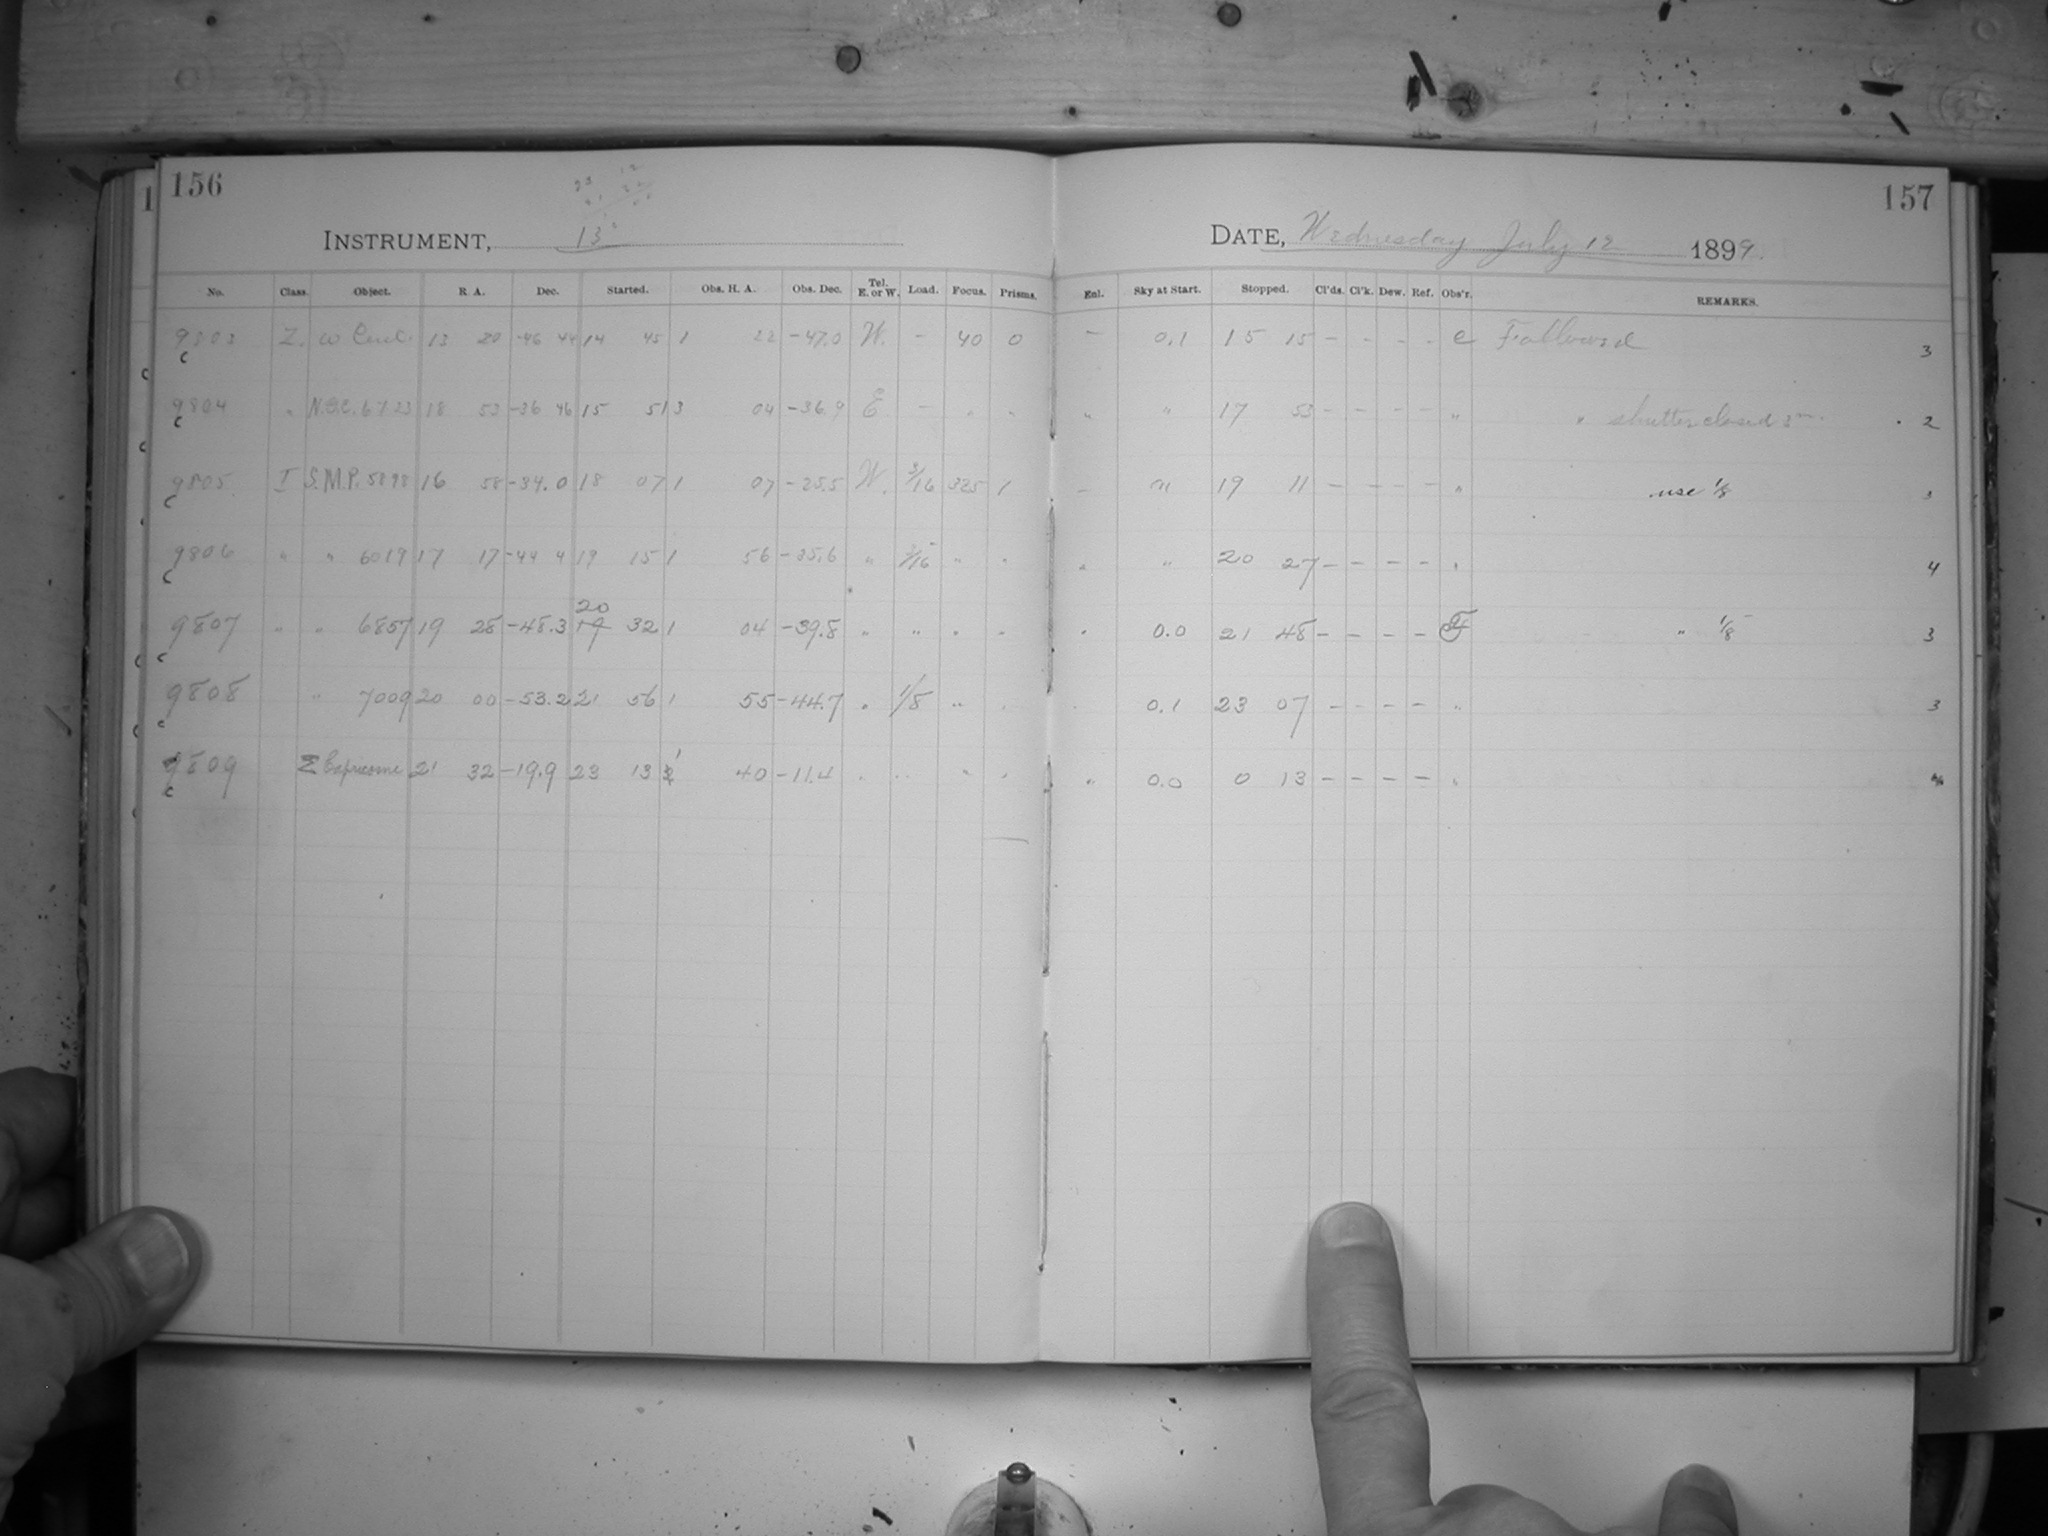 156
INSTRUMENT, 13
No. Class. Object. R. A. Dec. Started. Obs. H. A. Obs. Dec. Tel. E. or W. Load. Focus. Prisms.
9803 Z. ω Cent. 13 20 -46 44 14 45 1 22 -47.0 W. - 40 0
9804 " N.G.C. 6723 18 53 -36 46 15 51 3 04 -36.9 E - " "
9805 I S.M.P. 5898 16 58 -34.0 18 07 1 07 -25.5 W. 3/16 325 1
9806 " " 6019 17 17 -44 4 19 15 1 56 -35.6 " 3/16 " "
9807 " " 6857 19 28 -48.3 20 19 32 1 04 -39.8 " " " "
9808 " 7009 20 00 -53.2 21 56 1 55 -44.7 " 1/8 " "
9809 Σ Capricorni 21 32 -19.9 23 13 1 40 -11.4 " " " "
157
DATE, Wednesday July 12 1899.
Enl. Sky at Start. Stopped. Cl'ds. Cl'k. Dew. Ref. Obs'r. REMARKS.
- 0.1 15 15 - - - - C Followed 3
" " 17 53 - - - - " " shutter closed 3m. 2
- " 19 11 - - - - " use 1/8 3
" " 20 27 - - - - " 4
" 0.0 21 48 - - - - " 1/8 3
" 0.1 23 07 - - - - " 3
" 0.0 0 13 - - - - "